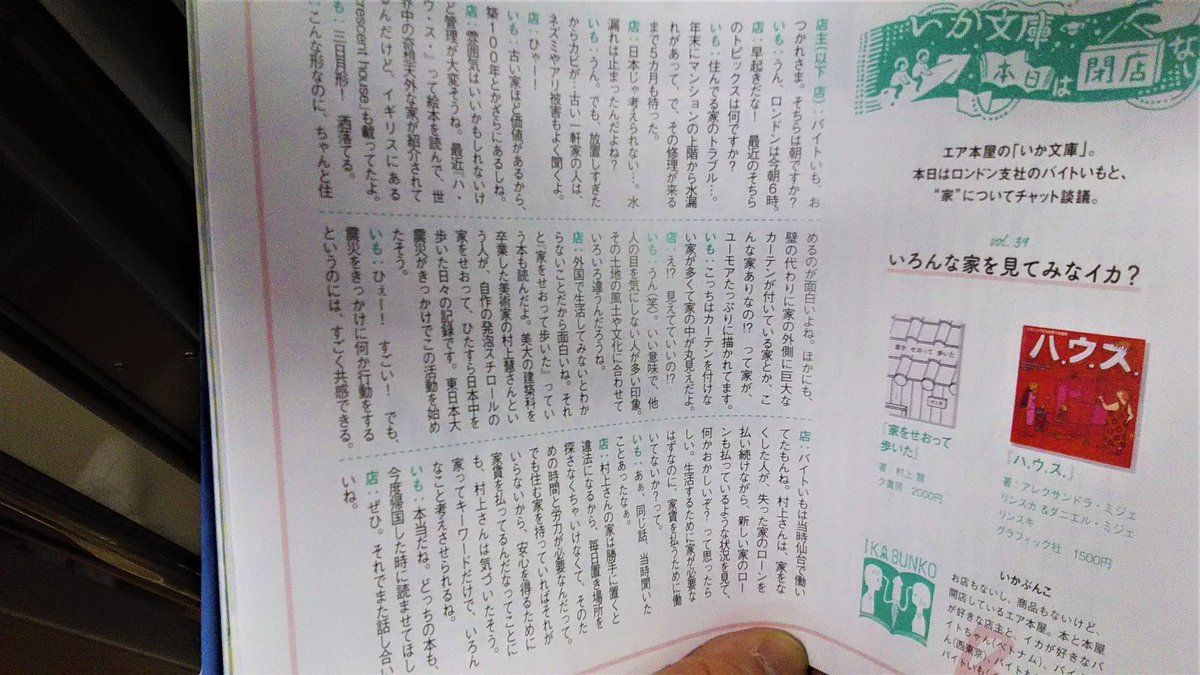 いか文庫
本日は
閉店
エア本屋の「いか文庫」。
本日はロンドン支社のバイトいもと、
“家”についてチャット談議。
vol. 39
いろんな家を見てみなイカ？
『ハ.ウ.ス.』
著：アレクサンドラ・ミジェ
リンスカ &ダニエル・ミジェ
リンスキ
グラフィック社　1500円
『家をせおって
歩いた』
著：村上 慧
夕書房　2000円
IKABUNKO
いかぶんこ
お店もないし、商品もないけど、
開店しているエア本屋。本と本屋
が好きな店主と、イカが好きなバ
イトちゃん(ベトナム)、バイ
ん(西東京)、バイト
バイトいも
店主(以下 店)：バイトいも、お
つかれさま。そちらは朝ですか？
いも：うん。ロンドンは今朝６時。
店：早起きだな！　最近のそちら
のトピックスは何ですか？
いも：住んでる家のトラブル…。
年末にマンションの上階から水漏
れがあって、で、その修理が来る
まで５カ月も待った。
店：日本じゃ考えられない…。水
漏れは止まったんだよね？
いも：うん。でも、放置しすぎた
からカビが…古い一軒家の人は、
ネズミやアリ被害もよく聞くよ。
店：ひゃー！
いも：古い家ほど価値があるから、
築１００年とかざらにあるしね。
店：雰囲気はいいかもしれないけ
ど管理が大変そうね。最近『ハ・
ウ・ス・』って絵本を読んで、世
界中の奇想天外な家が紹介されて
るんだけど、イギリスにある
crescent house」も載ってたよ。
いも：三日月形！　洒落てる。
店：こんな形なのに、ちゃんと住
めるのが面白いよね。ほかにも、
壁の代わりに家の外側に巨大な
カーテンが付いている家とか、こ
んな家ありなの!?　って家が、
ユーモアたっぷりに描かれてます。
いも：こっちはカーテンを付けな
い家が多くて家の中が丸見えだよ。
店：え!?　見えてていいの!?
いも：うん(笑)。いい意味で、他
人の目を気にしない人が多い印象。
その土地の風土や文化に合わせて
いろいろ違うんだろうね。
店：外国で生活してみないとわか
らないことだから面白いね。それ
と『家をせおって歩いた』ってい
う本も読んだよ。美大の建築科を
卒業した美術家の村上慧さんとい
う人が、自作の発泡スチロールの
家をせおって、ひたすら日本中を
歩いた日々の記録です。東日本大
震災がきっかけでこの活動を始め
たそう。
いも：ひぇー！　すごい！　でも、
震災をきっかけに何か行動をする
というのには、すごく共感できる。
店：バイトいもは当時仙台で働い
てたもんね。村上さんは、家をな
くした人が、失った家のローンを
払い続けながら、新しい家のロー
ンも払っているような状況を見て、
何かおかしいぞ？って思ったら
しい。生活するために家が必要な
はずなのに、家賃を払うために働
いてないか？って。
いも：あぁ、同じ話、当時聞いた
ことあったなぁ。
店：村上さんの家は勝手に置くと
違法になるから、毎日置き場所を
探さなくちゃいけなくて、そのた
めの時間と労力が必要なんだって。
でも住む家を持っていればそれが
いらないから、安心を得るために
家賃を払ってるんだなってことに
も、村上さんは気づいたそう。
家ってキーワードだけで、いろん
なこと考えさせられるね。
いも：本当だね。どっちの本も、
今度帰国した時に読ませてほし
店：ぜひ。それでまた話し合い
いね。